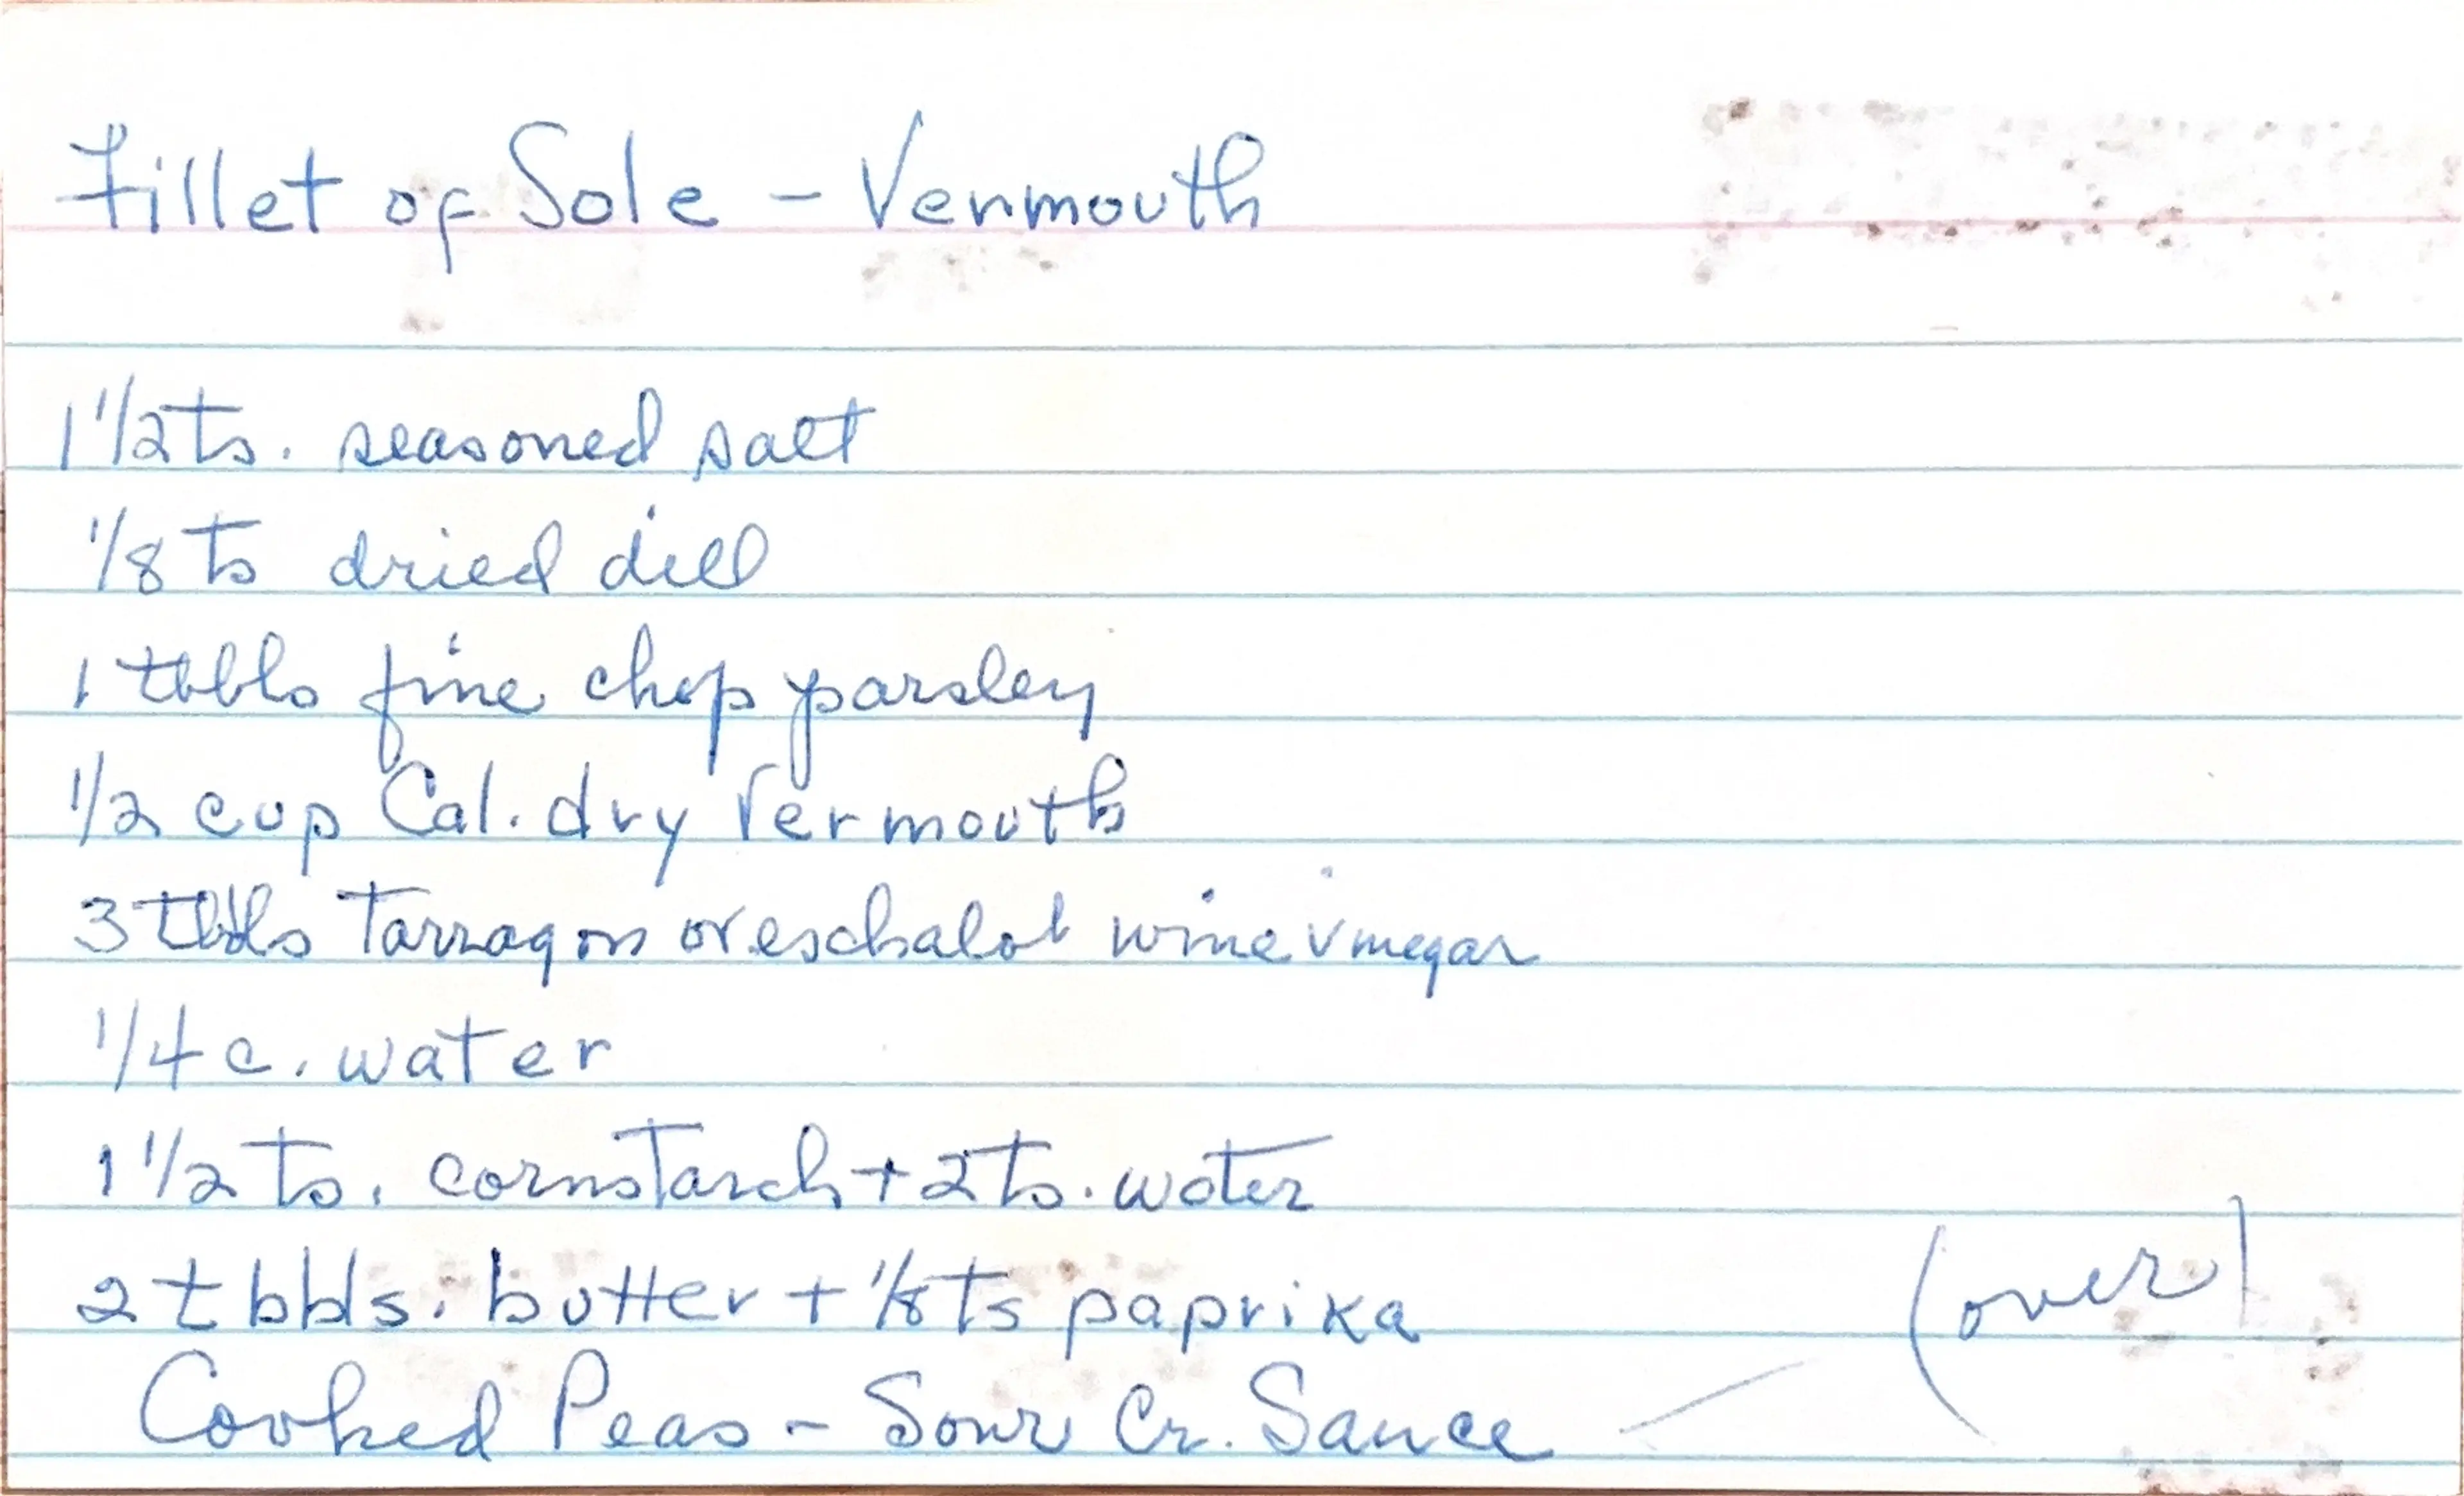 Fillet of Sole - Vermouth
1 1/2 ts. seasoned salt
1/8 ts dried dill
1 tbbls fine chop parsley
1/2 cup Cal. dry Vermouth
3 tbbls Tarragon or eschalot wine vinegar
1/4 c. water
1 1/2 ts. cornstarch + 2 ts. water
2 tbbls. butter + 1/8 ts paprika
Cooked Peas - Sour Cr. Sauce
(over)